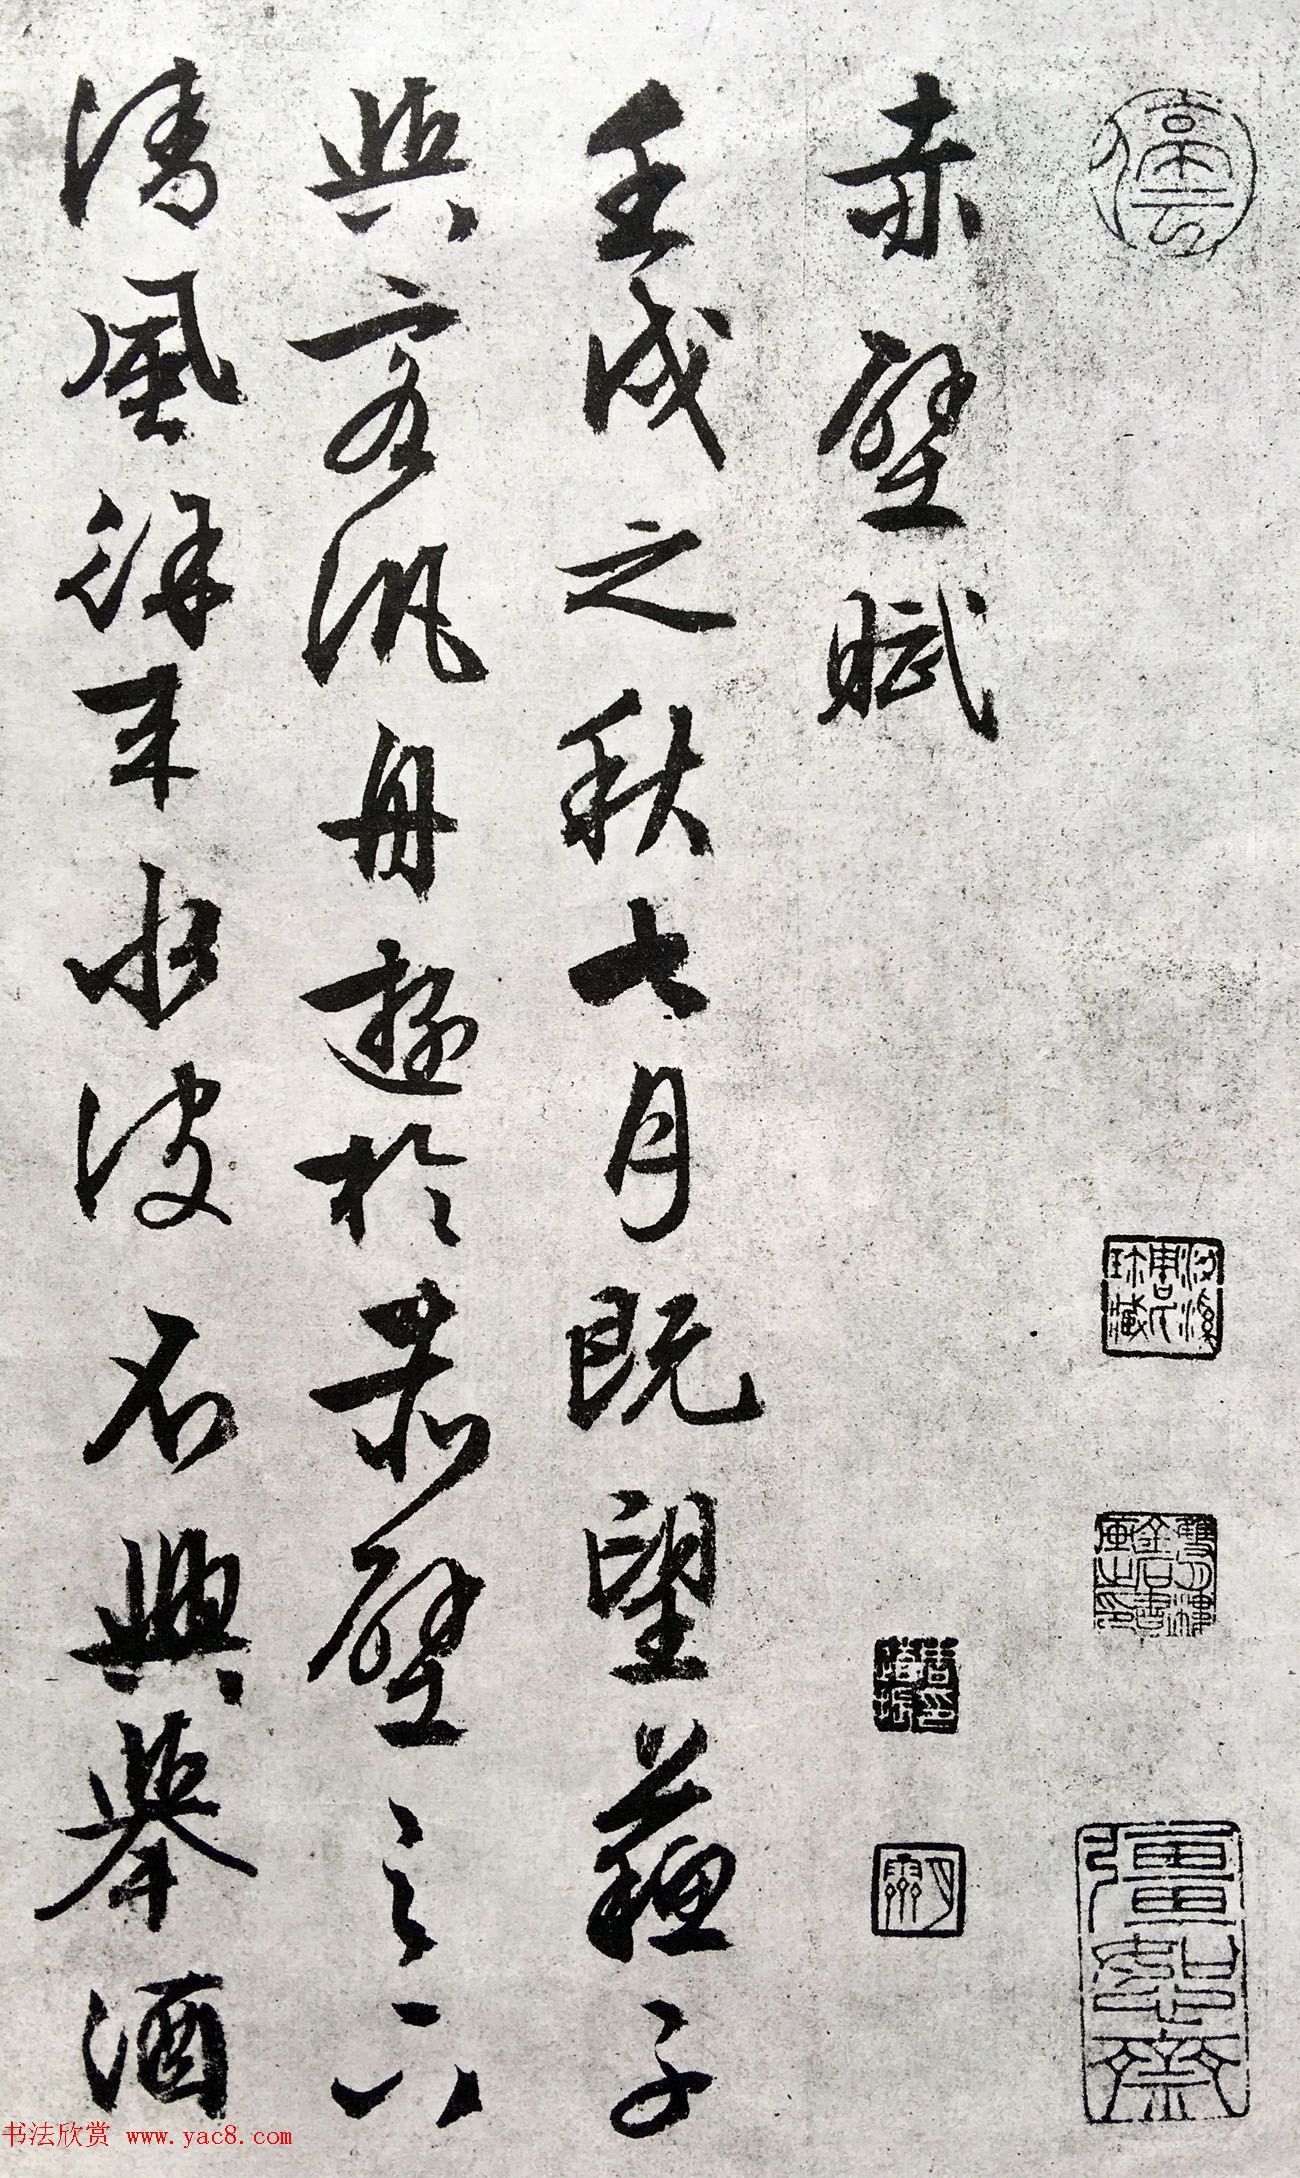 停云
彊恕齋
赤壁賦
壬戌之秋七月既望蘇子
與客汎舟遊於赤壁之下
清風徐来水波不興舉酒
书法欣赏 www.yac8.com